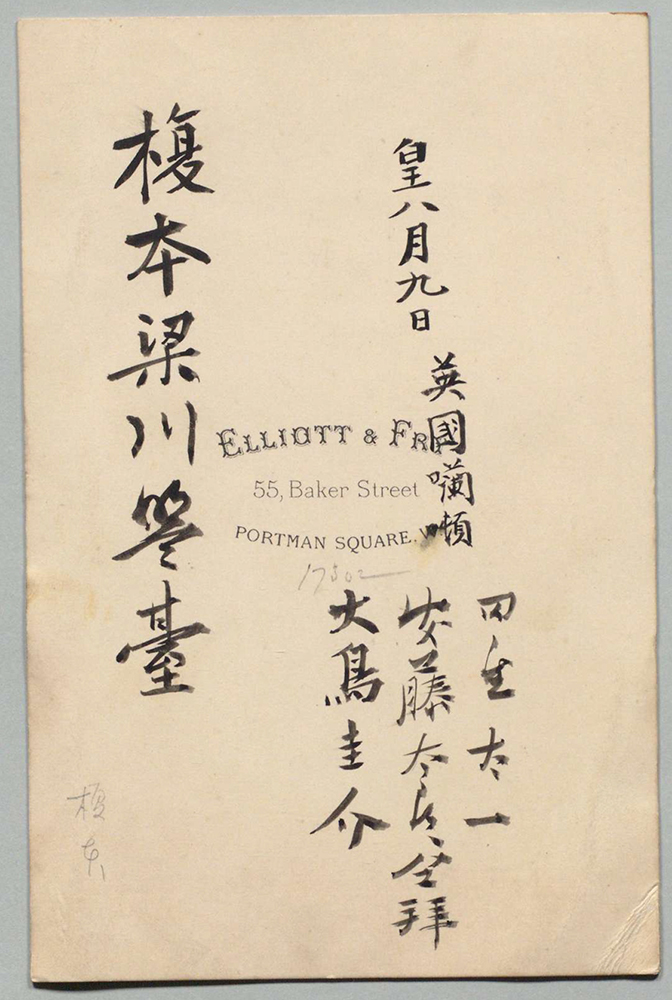 皇八月九日
英國囒噸
田邊太一
安藤太郎 仝拜
大鳥圭介
榎本梁川 臺
ELLIOTT & FR
55, Baker Street
PORTMAN SQUARE. W
榎本